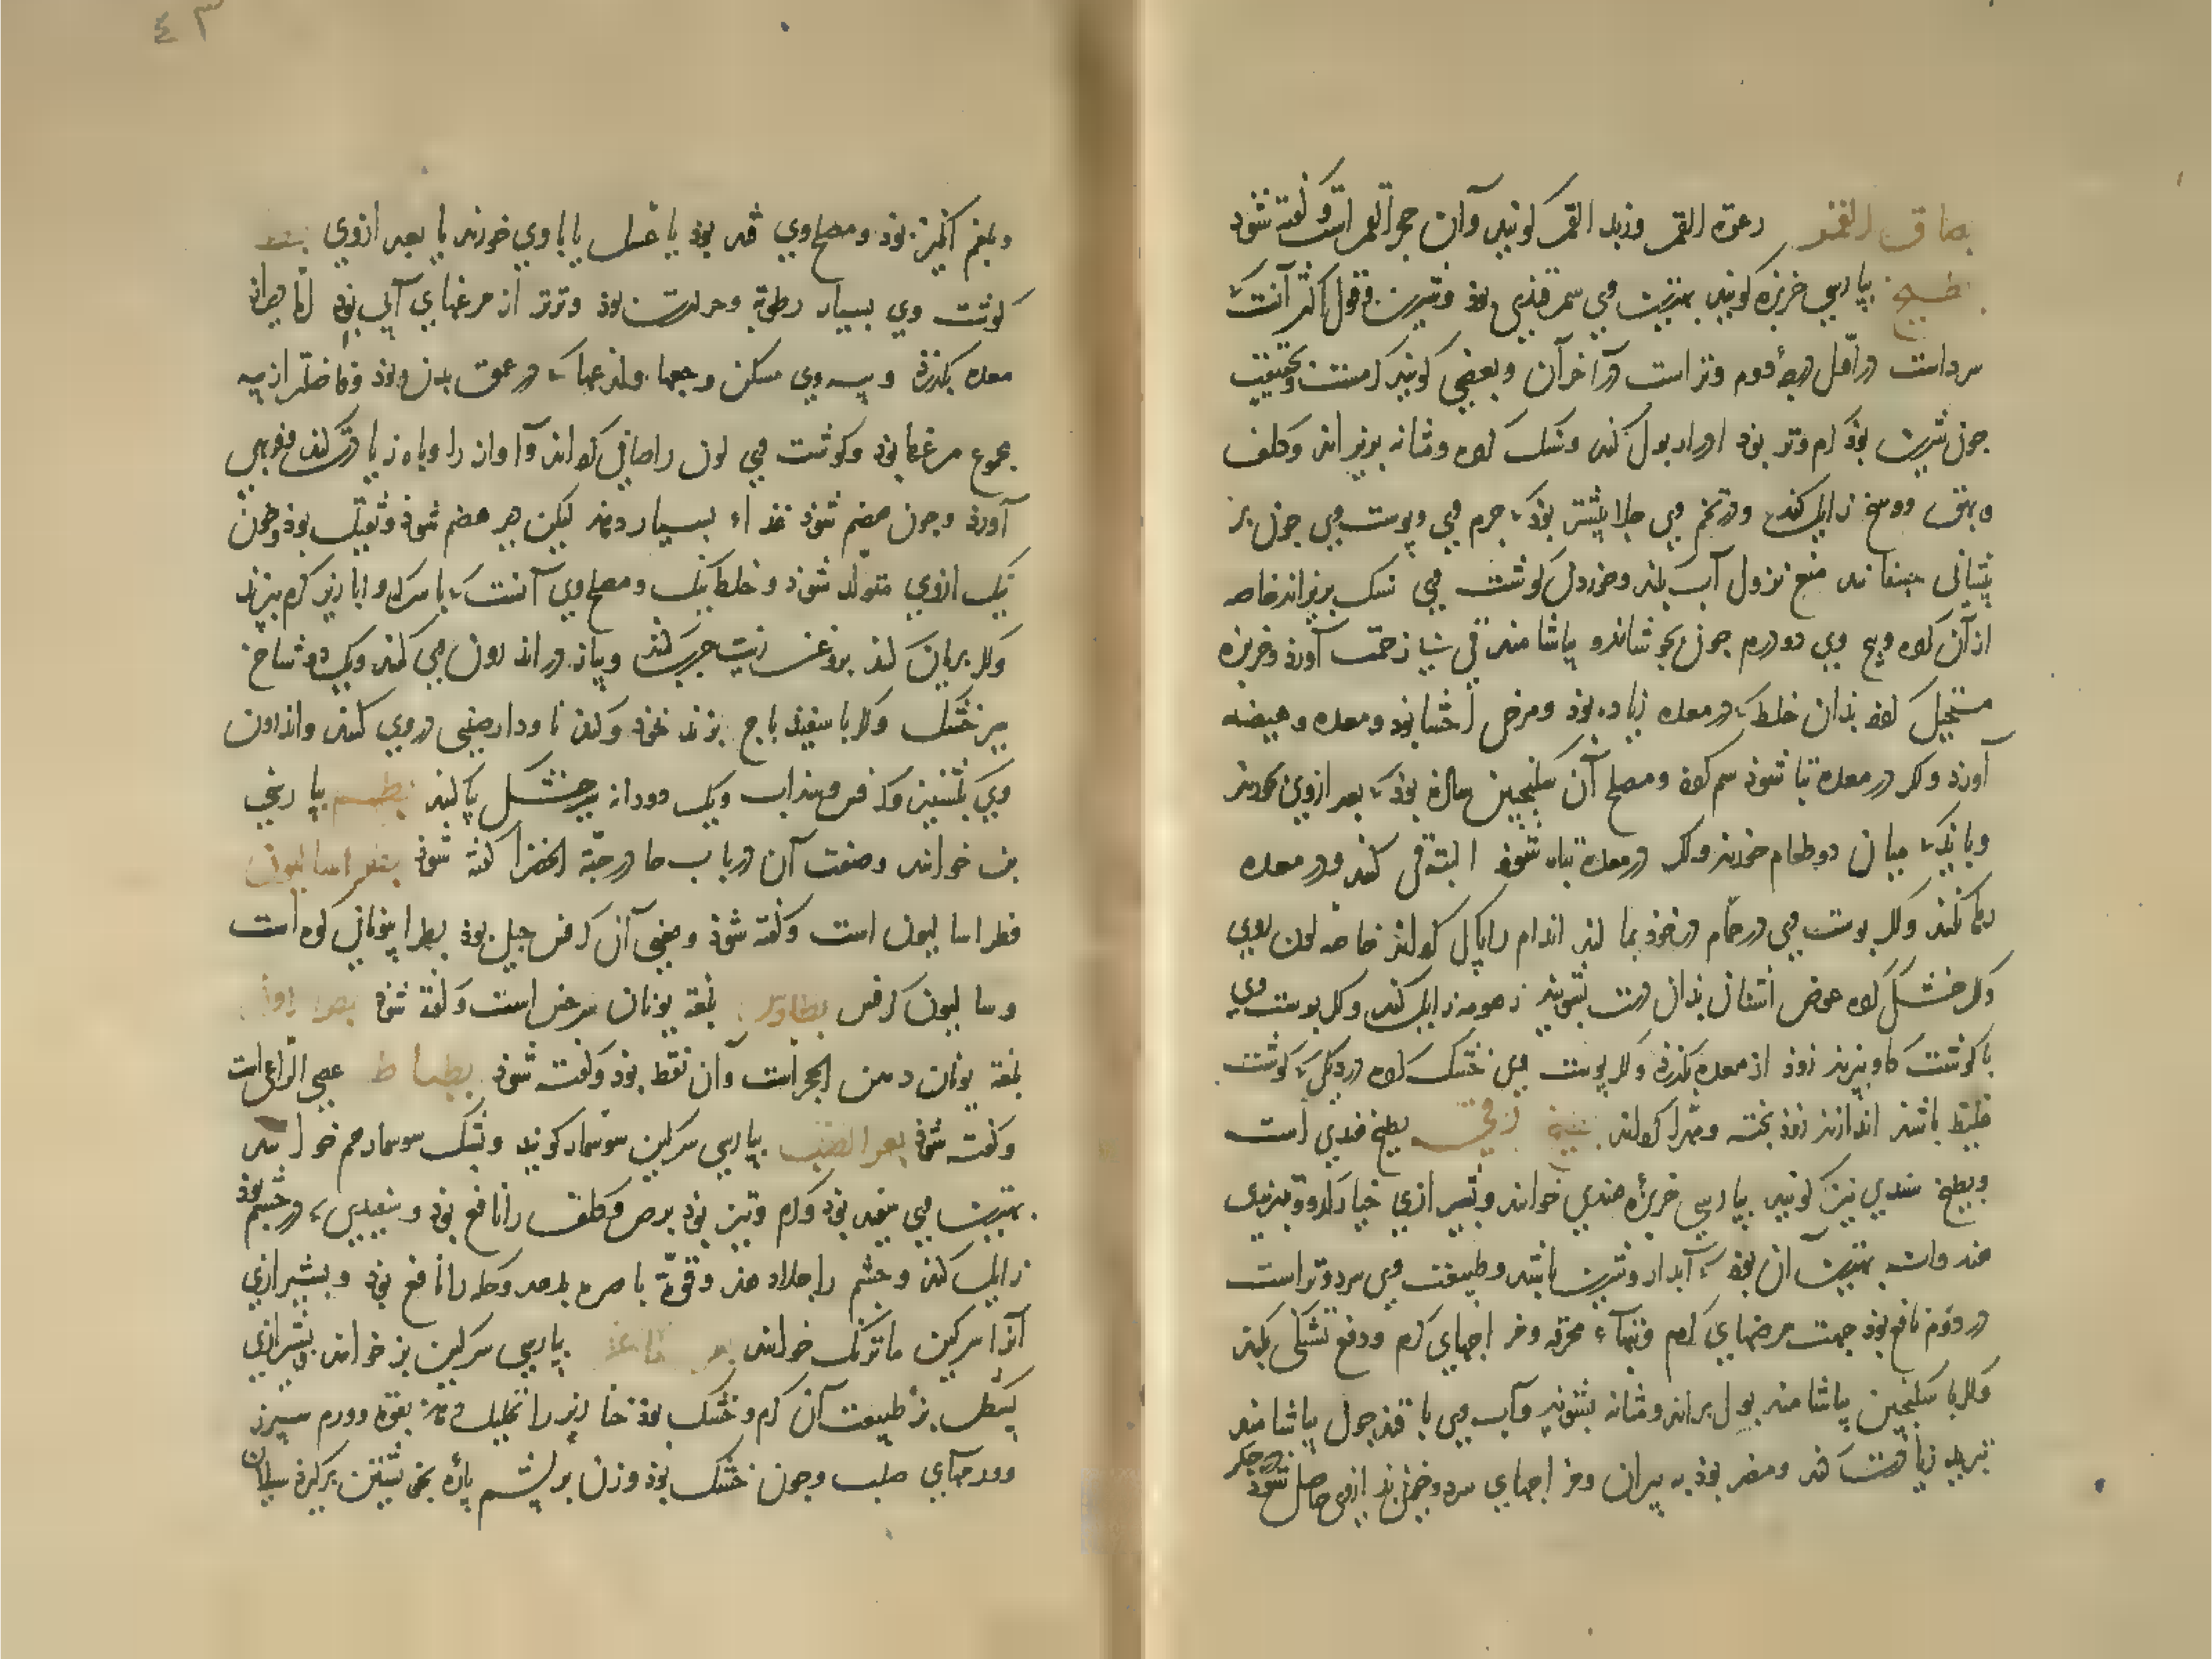 بصاق القمر رغوة القمر وزبد القمر گویند وآن حجر القمر است و گفته شود
بطیخ بپارسی خربزه گویند بهترین وی سمرقندی بود و شیرین و قول اکثر آنست که
سرد است در اول درجه دوم و تر است در آخر آن و بعضی گویند گرمست و بتحقیق
چون شیرین بود گرم و تر بود ادرار بول کند و سنگ گرده و مثانه بریزاند و کلف
و بهق و وسخ زایل کند و در تخم وی جلا بیشتر بود که جرم وی و پوست وی چون بر
پیشانی چسفانند منع نزول آب بکند و خوردن گوشت وی سنگ بریزاند خاصه
از آن گرده و بیخ وی دو درم چون بجوشانند و بیاشامند قی بی زحمت آورد و خربزه
مستحیل گردد بدان خلط که در معده زیاده بود و مرض احشا بود و معده و هیضه
آورد و اگر در معده تباه شود سم گردد و مصلح آن سکنجبین ساده بود که بعد از وی بخورند
و باید که میان دو طعام خورند و اگر در معده تباه شود البته قی کنند و در معده
رها نکنند و اگر پوست وی در حمام در خود بمالند اندام را پاک گرداند خاصه لون روی
و اگر خشک کرده عوض اشنان بدان دست بشویند زهومه زایل کند و اگر پوست وی
با گوشت گاو بپزند زود از معده بگذرد و اگر پوست وی خشک کرده در دیگ که گوشت
غلیظ باشد اندازند زود پخته و مهرا گرداند بطیخ زقی بطیخ هندی است
و بطیخ سندی نیز گویند بپارسی خربزه هندی خوانند و بشیرازی خیار
هندوانه بهترین آن بود که آبدار و شیرین باشد و طبیعت وی سرد و تر است
در دوم نافع بود جهت مرضهای گرم و تبهاء محرقه و مزاجهای گرم و دفع تشنگی بکند
و اگر با سکنجبین بیاشامند بول براند و مثانه بشوید و آب وی با قند چون بیاشامند
تبرید زیادت کند و مضر بود به پیران و مزاجهای سرد و خونی بد از وی حاصل شود
و بلغم انگیز بود و مصلح وی قند بود یا عسل یا با وی خورند یا بعد از وی بط
گوشت وی بسیار رطوبة و حرارت بود و تر تر از مرغهای آبی بود اما دیر از
معده بگذرد و پیه وی مسکن وجعها و لذعها که در عمق بدن بود و فاضلتر از پیه
مجموع مرغها بود و گوشت وی لون را صافی گرداند و آواز را و باه زیادت کند و فربهی
آورد و چون هضم شود غذاء بسیار دهد لیکن دیر هضم شود و ثقیل بود و خون
نیک از وی متولد شود و خلط نیک و مصلح وی آنست که با سرکه و ابازیر گرم بپزند
و اگر بریان کنند بروغن زیت چرب کنند و پیاز در اندرون وی کنند و یک دو شاخ
سیر خشک و اگر با سفیدباج بزند نخود و گندنا و دارچینی در وی کنند و اندرون
وی بکشنیز و کرفس و سذاب و یک دو دانه سیر خشک پر کنند بطم بپارسی
بن خوانند و صفت آن در باب حا در حبة الخضرا گفته شود بطراسالیون
فطراسالیون است و گفته شود و معنی آن کرفس جبلی بود بطرا بیونانی کوه است
و سالیون کرفس بطارس بلغة یونان سرخس است و گفته شود بطراون
بلغة یونان دهن الحجر است و آن نفط بود و گفته شود بطباط عصی الراعی است
و گفته شود بعر الضب بپارسی سرگین سوسمار گویند و پشک سوسمار هم خوانند
بهترین وی سفید بود و گرم و تیز بود برص و کلف را نافع بود و سفیدی که در چشم بود
زایل کند و چشم را جلا دهد و قوة باصره بدهد و حکه را نافع بود و بشیرازی
آنرا سرگین ماترنگ خوانند بعر الماعز بپارسی سرگین بز خوانند و بشیرازی
پشکل بز طبیعت آن گرم و خشک بود خنازیر را تحلیل دهد بقوة و ورم سپرز
و ورمهای صلب و چون خشک بود و زن بر پشم پاره بخویشتن برگیرد سیلان